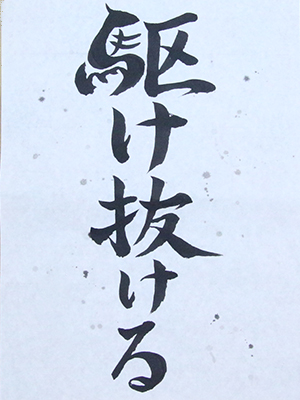 駆け抜ける